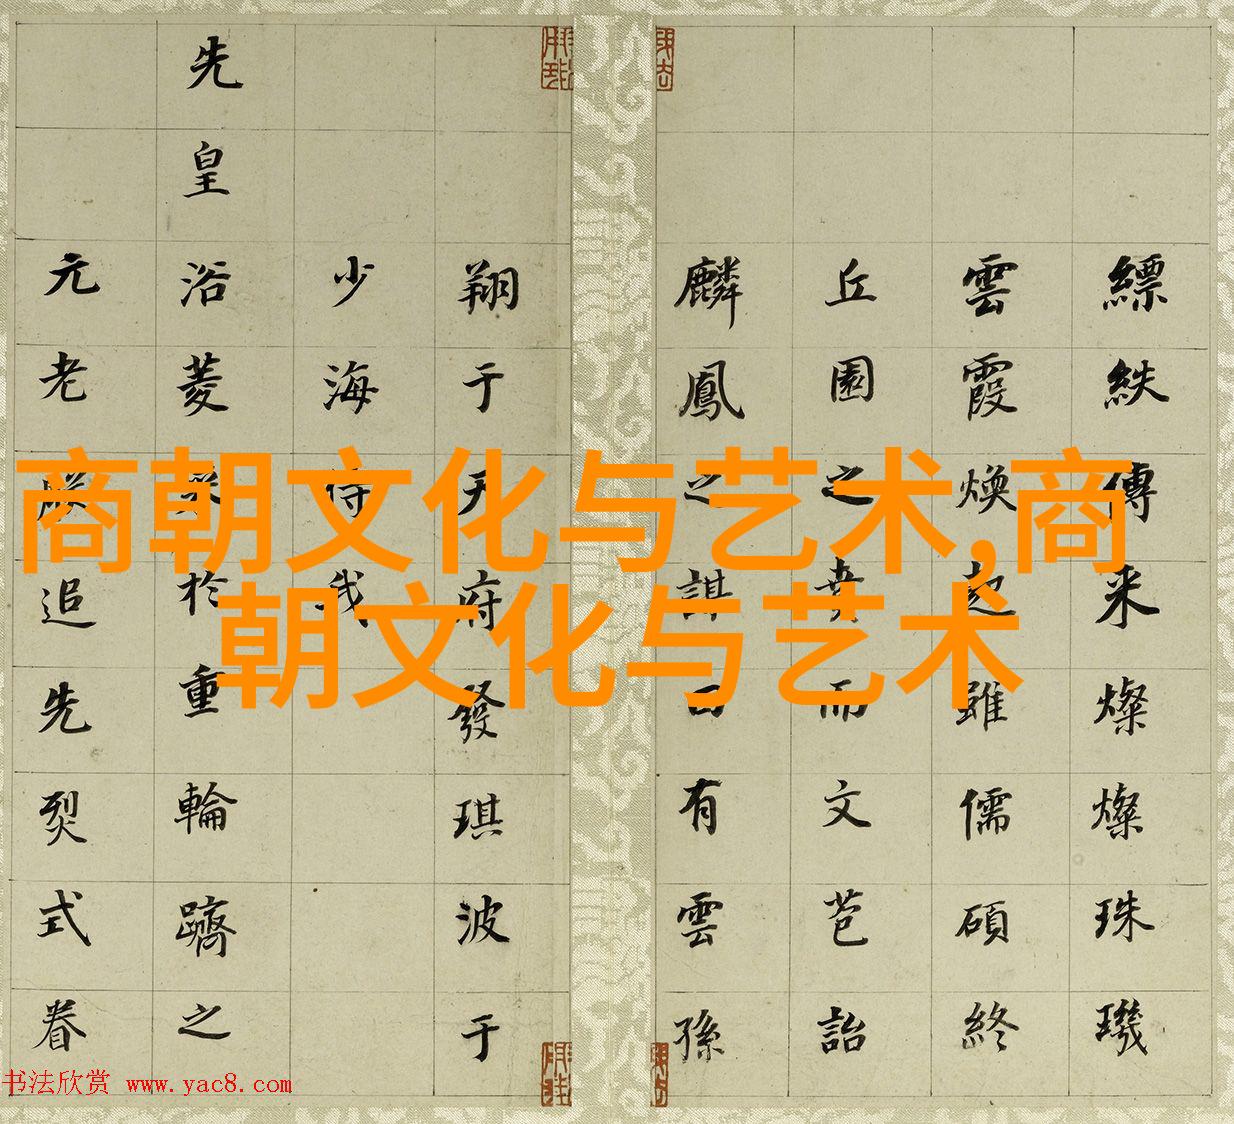 縹紩傳来燦燦珠璣
雲霞煥起雖儒碩終
丘園之而文苞詒
麟鳳之有雲孫
翔于天府發琪波于
少海侍我
先皇浴於重輪躋之
元老朕追先烈式眷
商朝文化与艺术,商
朝文化与艺术
书法欣赏 www.yac8.com